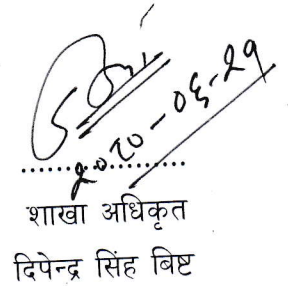 २०८०-०६-२९
शाखा अधिकृत
दिपेन्द्र सिंह बिष्ट